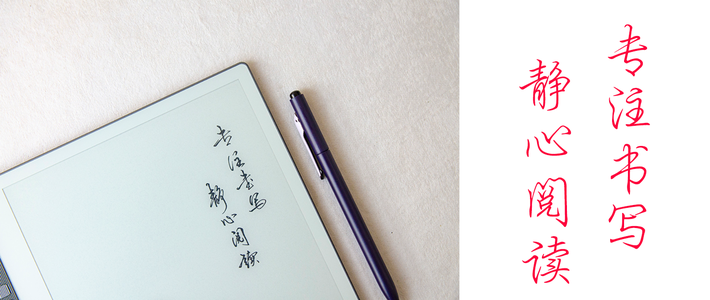 专注書写
静心阅读
专注书写
静心阅读